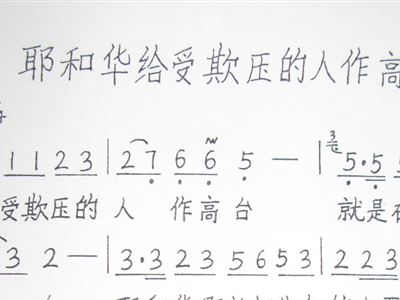 耶和华给受欺压的人作高
1 1 2 3 | 2 7 6 6 5 — | 5·5 5
受欺压的人 作高台 就是在
3 2 — | 3·3 2 3 5 6 5 3 | 2 2 3